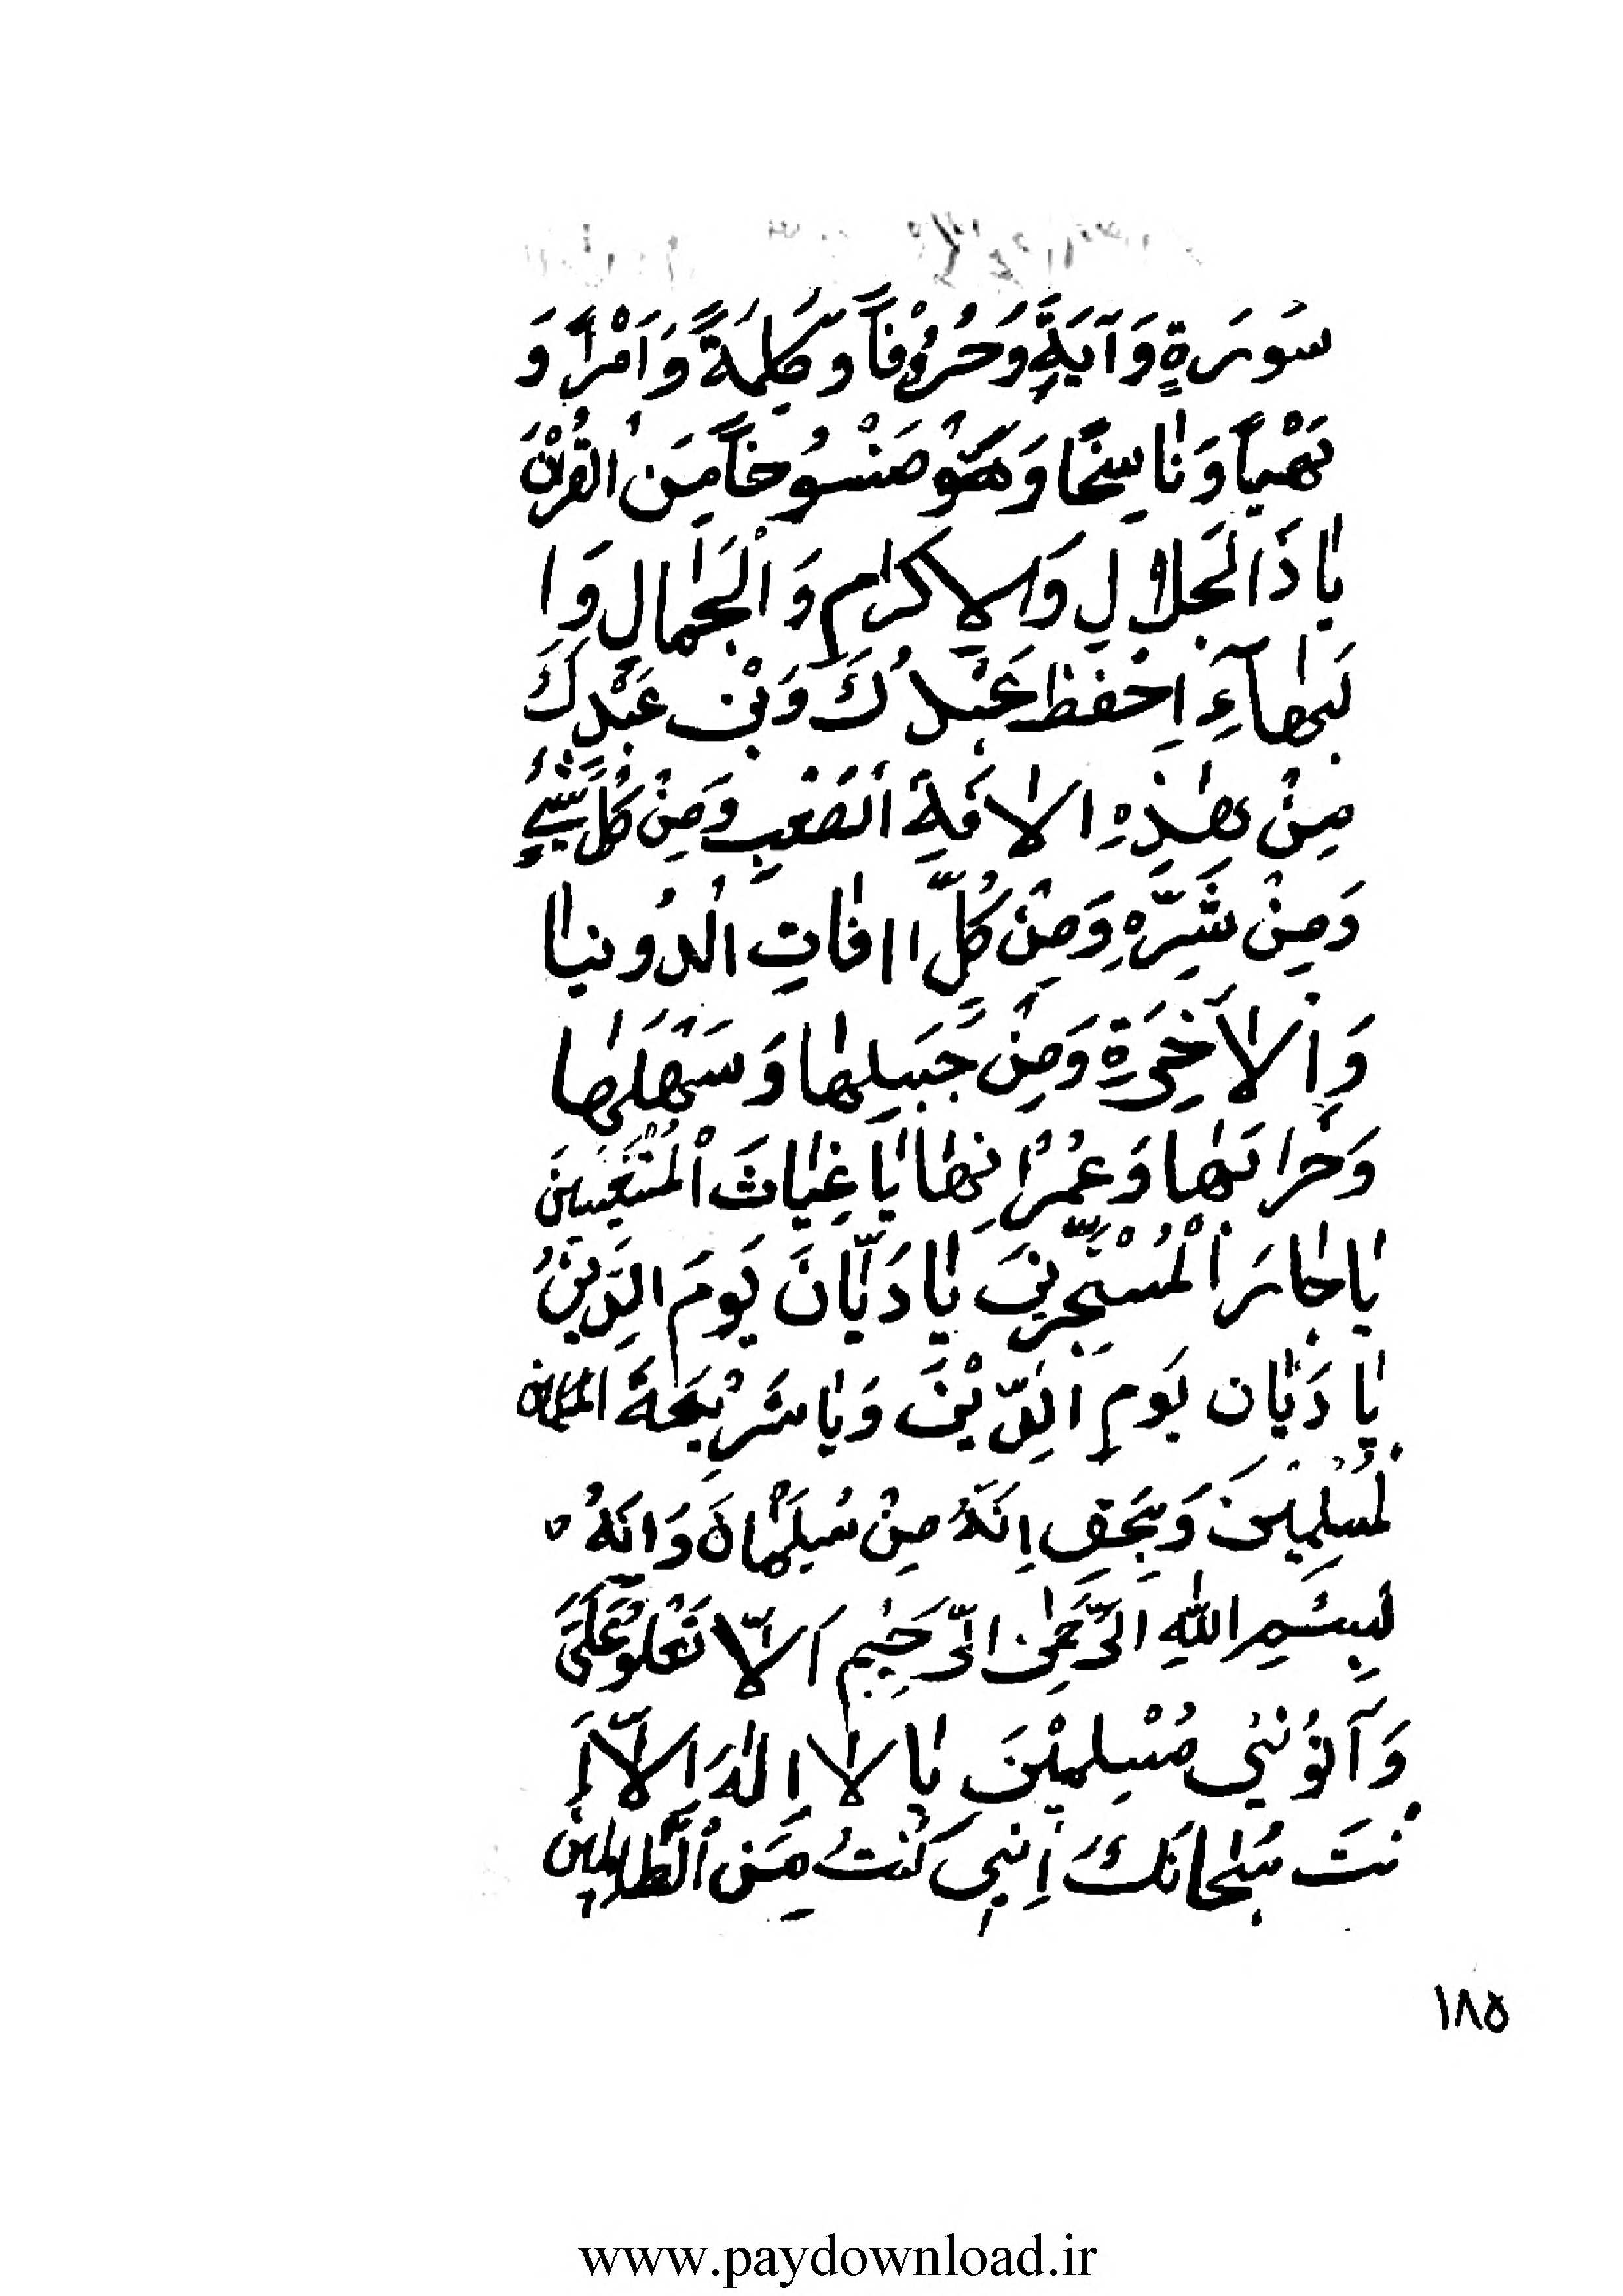 سُورَةٍ وَآيَةٍ وَحُرُوْفاً وَكَلِمَةً وَاَمْراً وَ
نَهْياً وَنٰاسِخًا وَهَوْ مَنْسُوخاً مِنَ القُرْاٰنَ
يٰا ذَالجَلاٰلِ وَالاِكرٰام وَالْجَمٰالِ وَا
لبَهٰآءِ اِحْفَظ عَبْدُكَ وَبْن عَبْدِكَ
مِنْ هٰذِهِ الاٰفَةِ الصَعْبِ وَمِنْ كُلِّ شَيْءٍ
وَمِنْ شَرِّهِ وَمِنْ كُلِّ اافٰاتِ الدُونيٰا
وَالاٰخِرَةِ وَمِنْ جَبَلِهٰا وَسَهْلَهٰا
وَخَرابَهٰا وَعُمْرٰانِهٰا يٰا غِيٰاثَ الْمُسْتَغيثينَ
يٰا جٰارَ الْمُسْتَجِيرّينَ يٰا دَيّٰانَ يَومَ الدِّينُ
يٰا دَيٰان يَومِ الدِّيْنَ وَيٰا شَرِيْعَةَ
لْمُسلِمِيْنَ وَبِحَقِ اِنَّهُ مِنْ سُلَيْمٰانَ وَانَهُ
بِسْمِ اللهِ الرَّحْمٰن الرَّحِيْم اَلاّٰ تَعْلوُ عَلَىَّ
وَآتوُنىٖ مُسْلِمِيْنَ يٰا لاٰ اِلٰهَ اِلاّٰ اَ
نْتَ سُبْحٰانَكَ اِنىِ كُنْتُ مِنَ الْظّٰالِمينْ
١٨٥
www.paydownload.ir